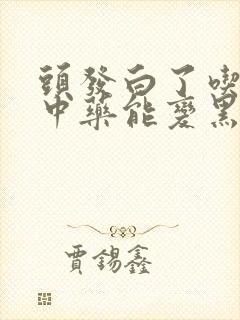 頭發白了喫
中藥能變黑
賈錫鑫